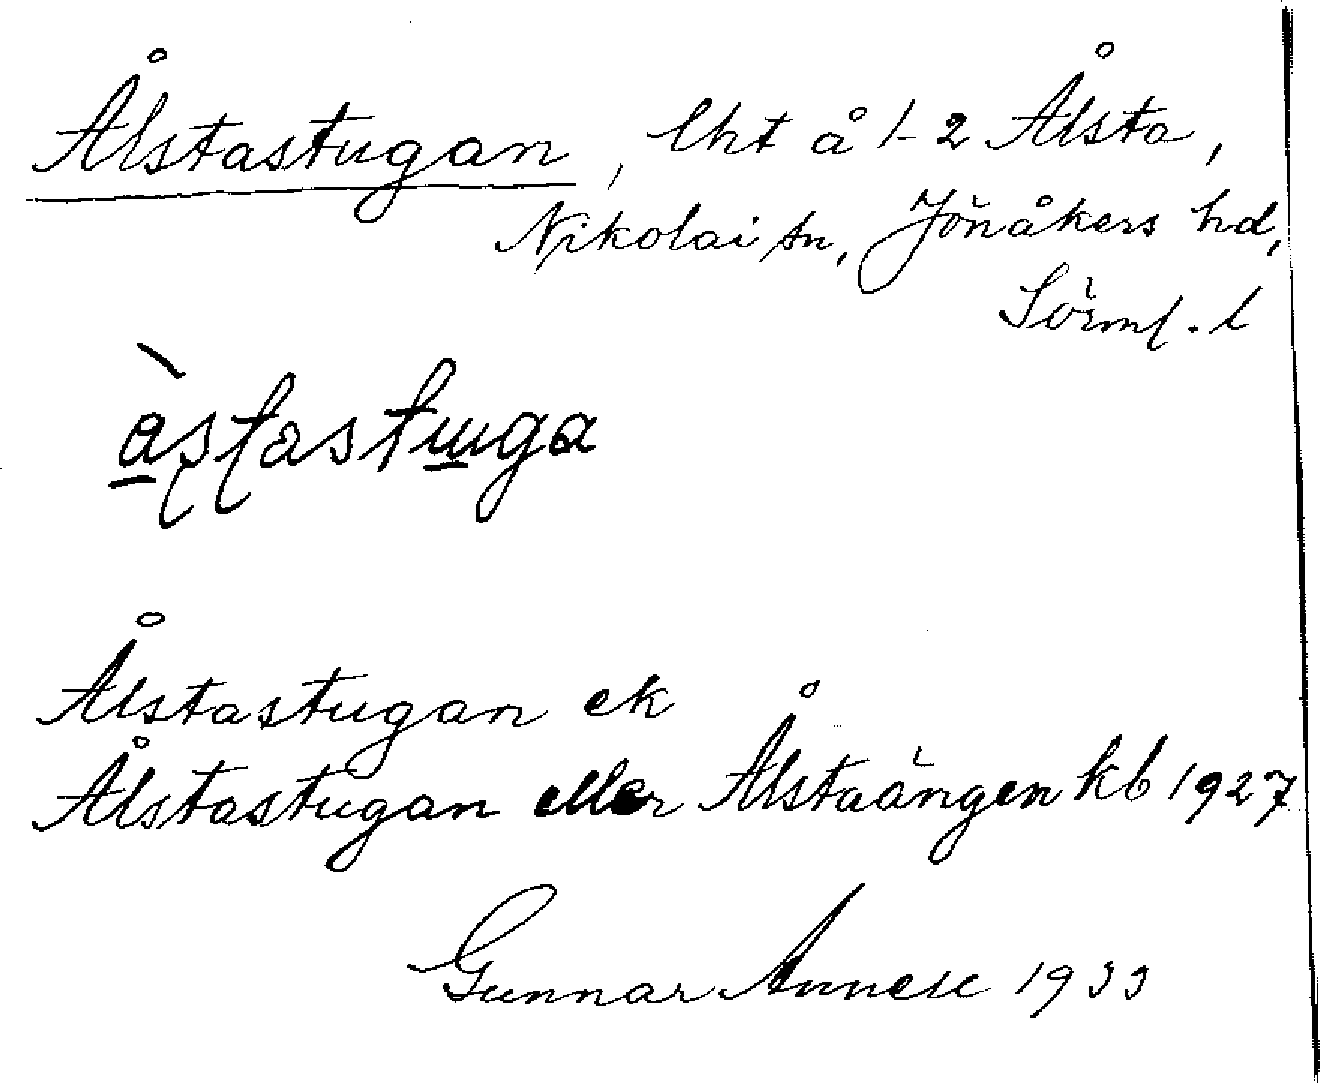 Ålstastugan, lht å 1-2 Ålsta,
Nikolai sn, Jönåkers hd,
Sörml. l
àstastuga
Ålstastugan ek
Ålstastugan eller Ålstaängen kb 1927
Gunnar Annell 1933